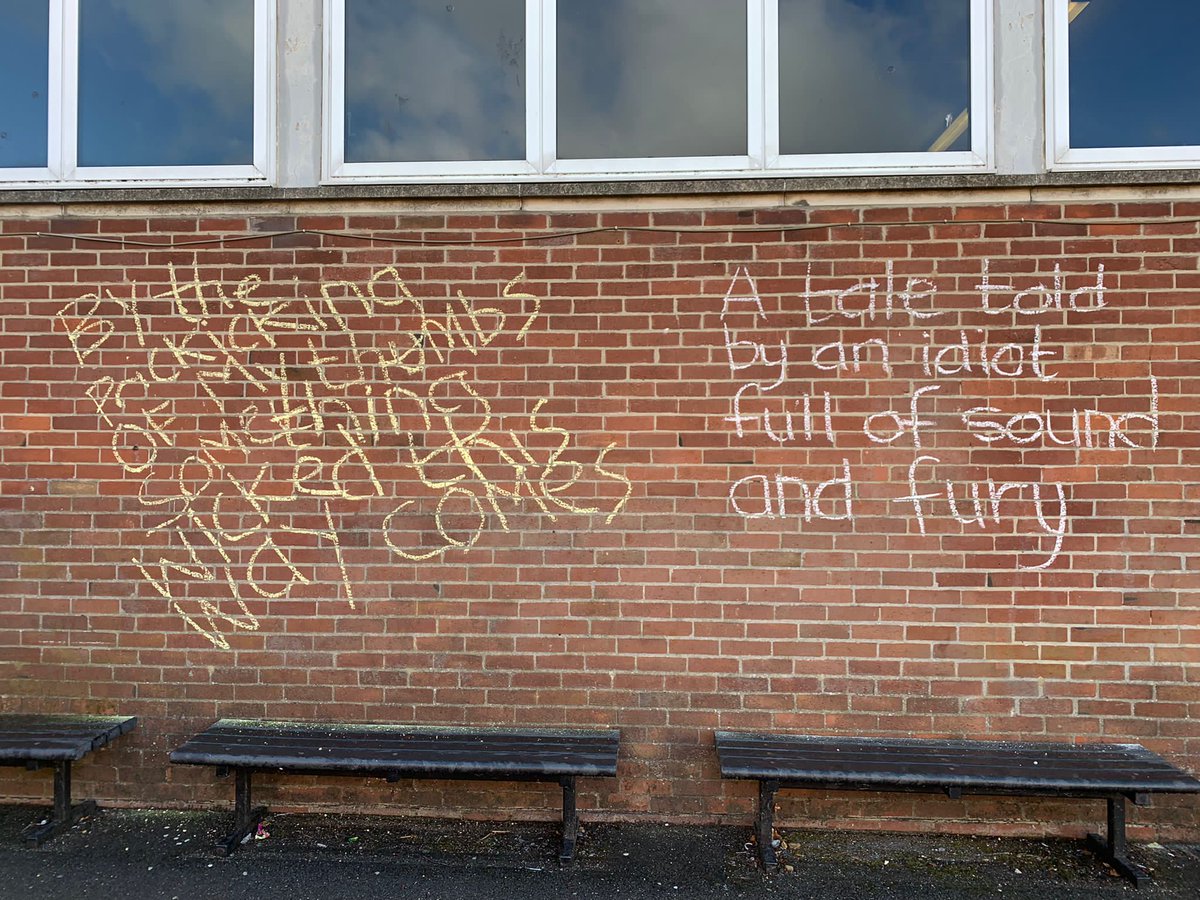 BY the
pricking
OF MY thumbs
something
wicked this
WAY comes
A tale told
by an idiot
full of sound
and fury